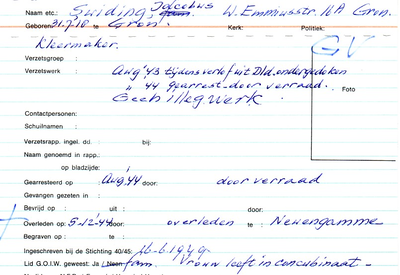 Jacobus
Naam etc.: Swiding, W. Emmiusstr. 16A Gron.
Geboren: 31.7.10 te Gron. Kerk: Politiek:
Kleermaker. GV
Verzetsgroep :
Verzetswerk : Aug '43 tijdens verlof uit Dld. ondergedoken
" 44 gearrest. door verraad.
Geen illeg. werk. Foto
Contactpersonen:
Schuilnamen :
Verzetsrapp. ingel. dd. : bij:
Naam genoemd in rapp.:
op bladzijde:
Gearresteerd op : Aug. '44 door: door verraad
Gevangen gezeten in :
Bevrijd op : uit : door:
Overleden op : 5-12-'44 door: overleden te Neuengamme
Begraven op : te :
Ingeschreven bij de Stichting 40/45: 16-6-1949
Lid G.O.I.W. geweest: Ja / Neen fam. Vrouw leeft in concubinaat -